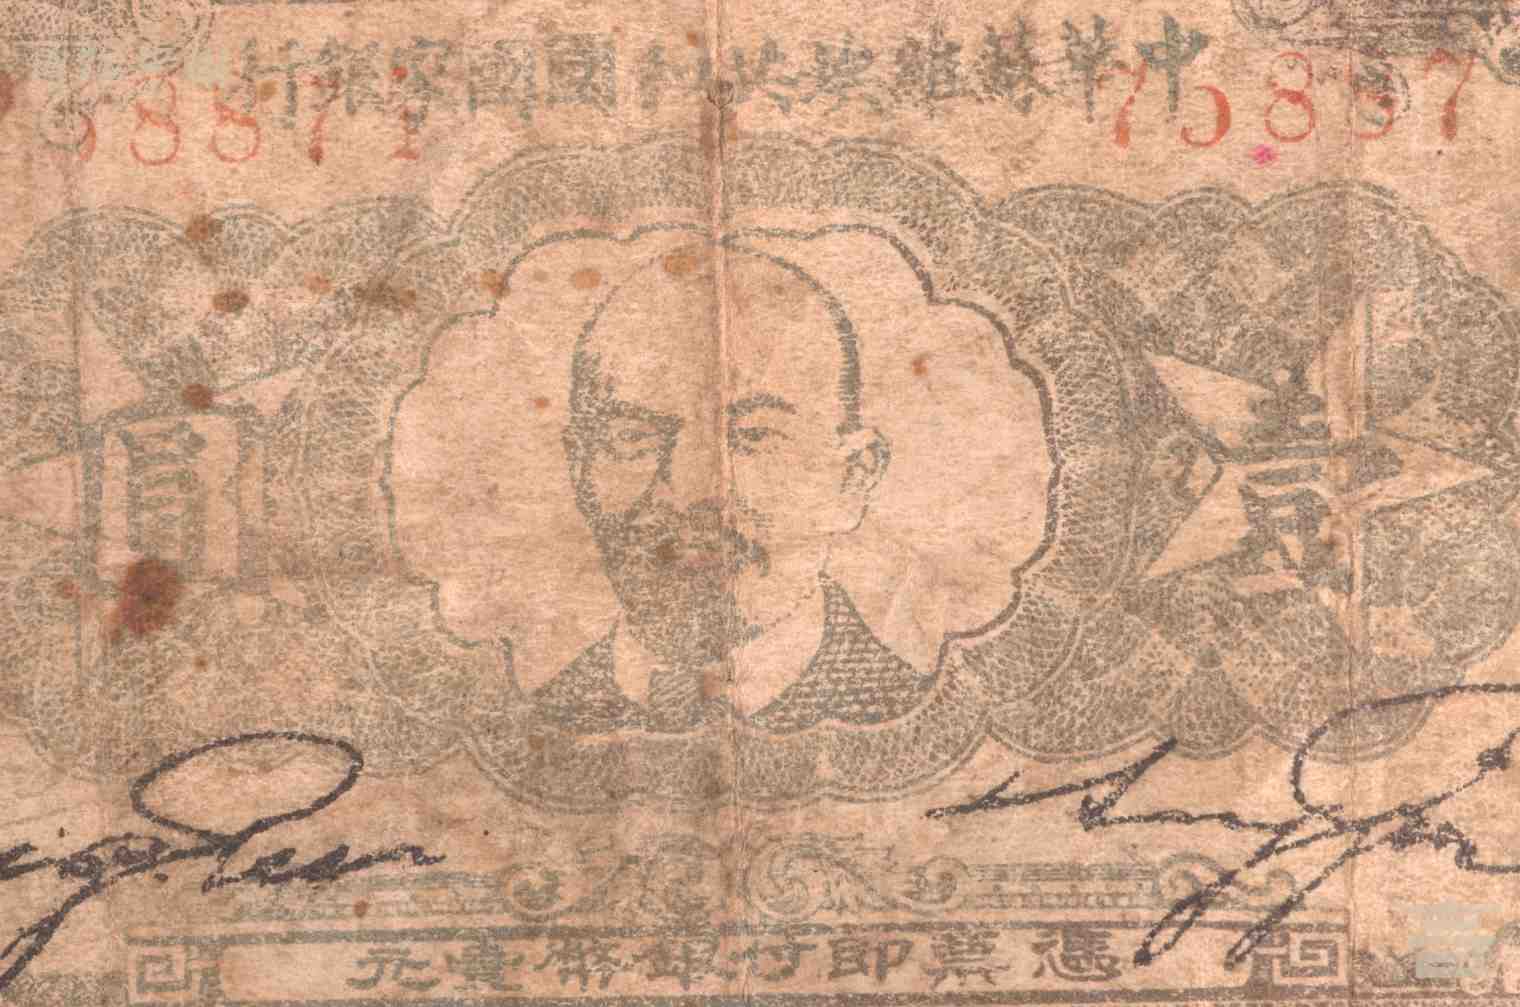 中華蘇維埃共和國國家銀行
58871
75887
壹圓
憑票即付銀幣壹元